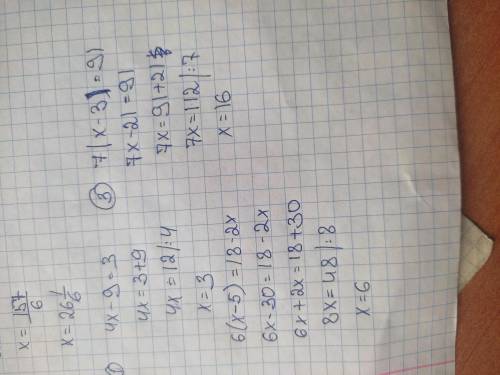 x = 157/6
x = 26 1/6
4x - 9 = 3
4x = 3 + 9
4x = 12 | : 4
x = 3
6(x - 5) = 18 - 2x
6x - 30 = 18 - 2x
6x + 2x = 18 + 30
8x = 48 | : 8
x = 6
③ 7(x - 3) = 91
7x - 21 = 91
7x = 91 + 21
7x = 112 | : 7
x = 16